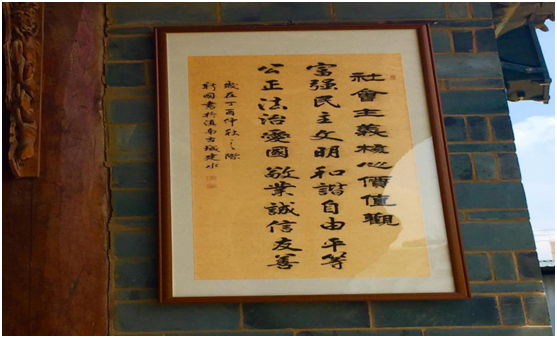 社會主義核心價值觀
富强民主文明和諧自由平等
公正法治愛國敬業誠信友善
歲在丁酉仲秋之際
新國書於滇南古城建水